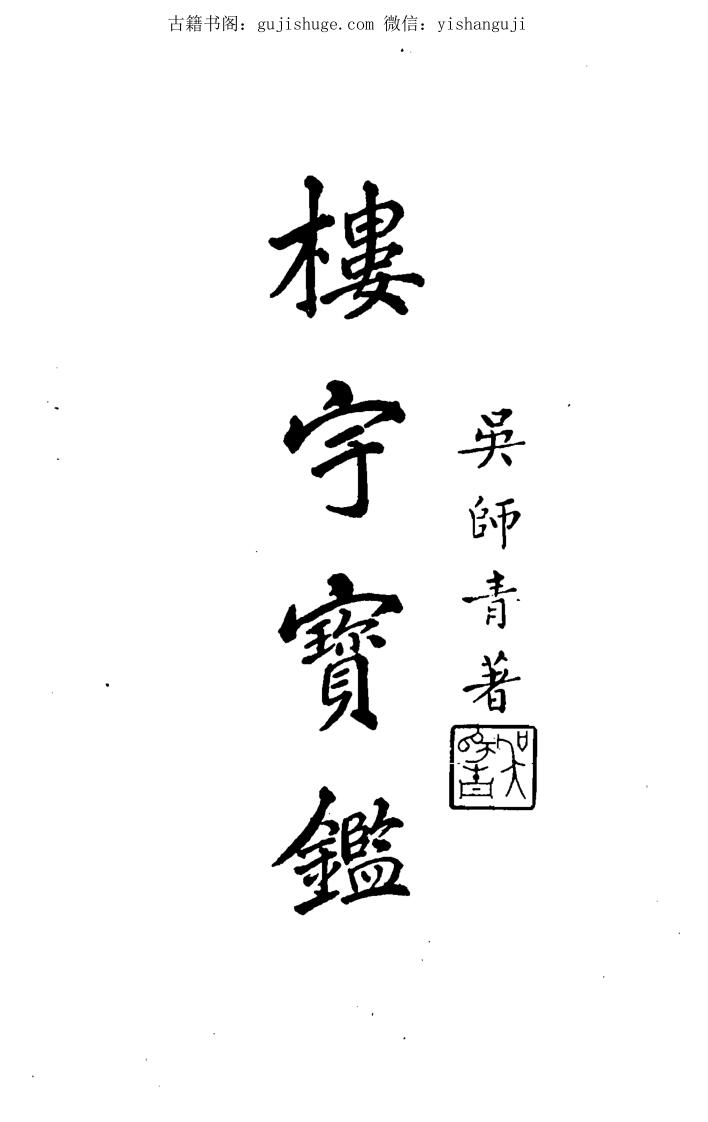 古籍书阁：gujishuge.com 微信：yishanguji
樓宇寶鑑
吳師青著